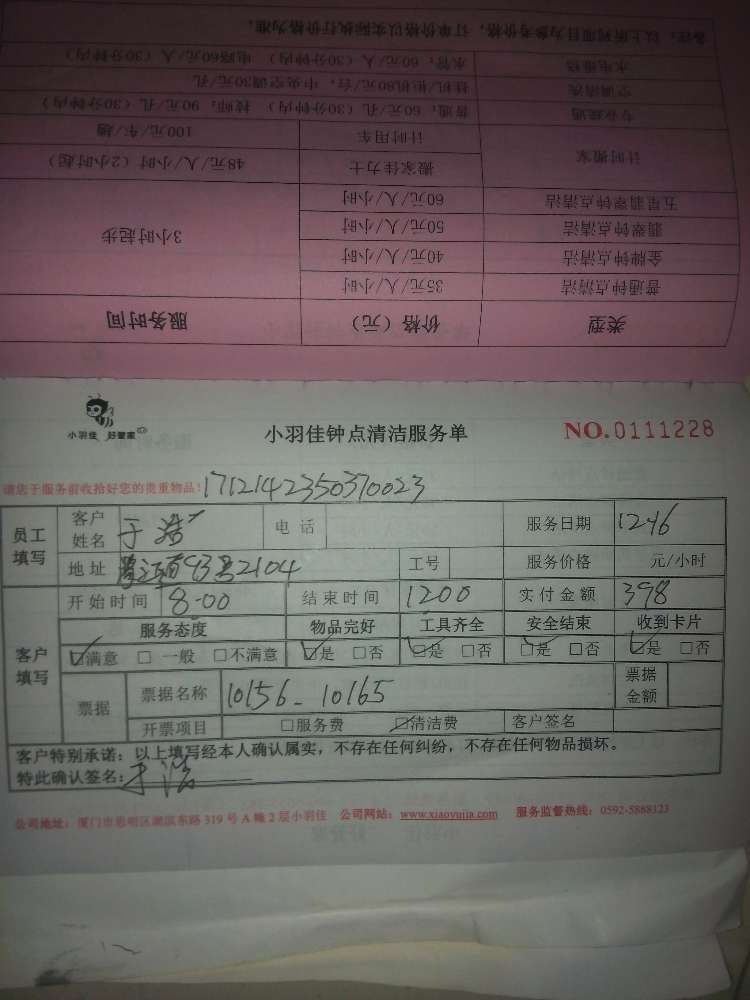 类型 价格（元） 服务时间
普通钟点清洁 35元/人/小时 3小时起步
金牌钟点清洁 40元/人/小时
翡翠钟点清洁 50元/人/小时
五星翡翠钟点清洁 60元/人/小时
计时搬家 搬家佳力士 48元/人/小时（2小时起）
计时用车 100元/车/趟
专业疏通 普通：60元/孔（30分钟内） 技师：90元/孔（30分钟内）
空调清洗 挂机/柜机80元/台，中央空调30元/孔
水电维修 水管：60元/人（30分钟内） 电路60元/人（30分钟内）
备注：以上所列项目为参考价格，订单价格以实际执行价格为准。
小羽佳 好管家
小羽佳钟点清洁服务单
NO.0111228
请您于服务前收拾好您的贵重物品！ 1712142350370023
员工填写 客户姓名 于浩 电话 服务日期 1246
地址 93号2104 工号 服务价格 元/小时
客户填写 开始时间 8-00 结束时间 1200 实付金额 398
服务态度 物品完好 工具齐全 安全结束 收到卡片
☑满意 □一般 □不满意 ☑是 □否 ☑是 □否 ☑是 □否 ☑是 □否
票据 票据名称 10156-10165 票据金额
开票项目 □服务费 ☑清洁费 客户签名
客户特别承诺：以上填写经本人确认属实，不存在任何纠纷，不存在任何物品损坏。
特此确认签名：于浩
公司地址：厦门市思明区湖滨东路319号A幢2层小羽佳 公司网站：www.xiaoyujia.com 服务监督热线：0592-5868123